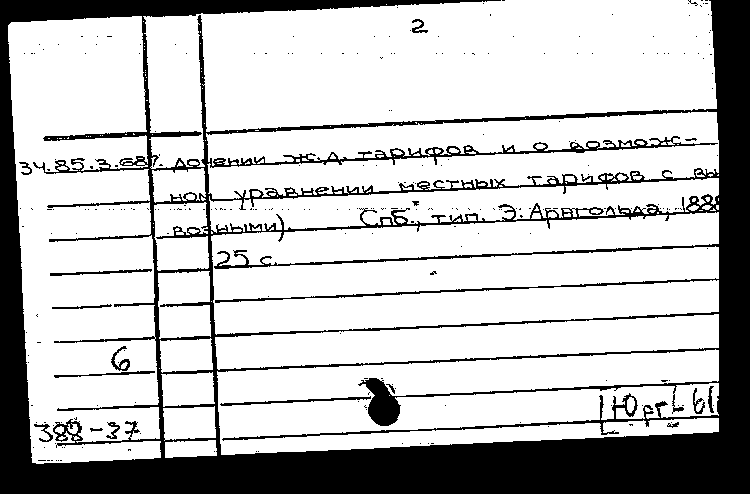 2
34.85.3.687. дочении ж.д. тарифов и о возмож-
ном уравнении местных тарифов с вы
возными). Спб., тип. Э. Арнгольда, 1888
25 с.
6
388-37